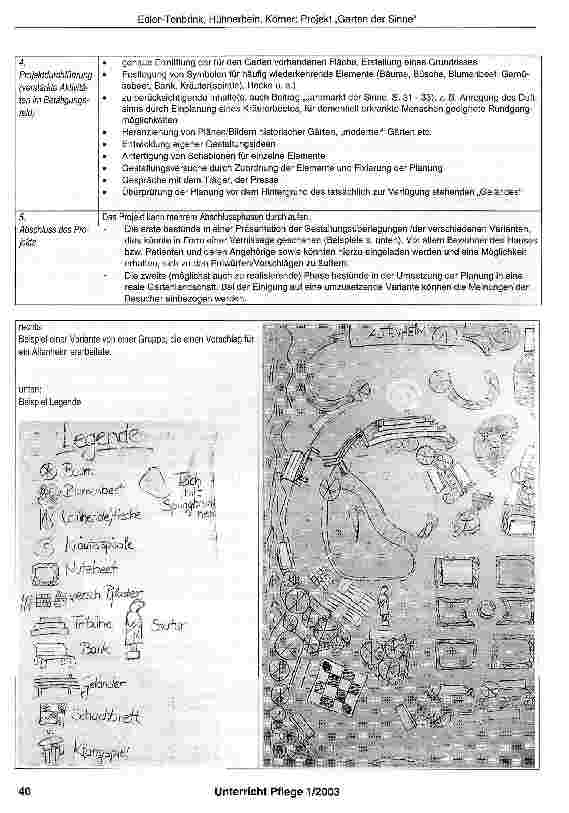 Edler-Tenbrink, Hühnerbein, Körner: Projekt „Garten der Sinne“
4.
Projektdurchführung
(verstärkte Aktivitä-
ten im Betätigungs-
feld)
• genaue Ermittlung der für den Garten vorhandenen Fläche, Erstellung eines Grundrisses
• Festlegung von Symbolen für häufig wiederkehrende Elemente (Bäume, Büsche, Blumenbeet, Gemü-
sebeet, Bank, Kräuter(spirale), Hecke u. a.)
• zu berücksichtigende Inhalte(s. auch Beitrag der Sinne, S. 31 - 33), z. B. Anregung des Duft-
sinns durch Einplanung eines Kräuterbeetes, für dementiell erkrankte Menschen geeignete Rundgang-
möglichkeiten
• Heranziehung von Plänen/Bildern historischer Gärten, „moderner“ Gärten etc.
• Entwicklung eigener Gestaltungsideen
• Anfertigung von Schablonen für einzelne Elemente
• Gestaltungsversuche durch Zuordnung der Elemente und Fixierung der Planung
• Gespräche mit dem Träger, der Presse
• Überprüfung der Planung vor dem Hintergrund des tatsächlich zur Verfügung stehenden „Geländes“
5.
Abschluss des Pro-
jekts
Das Projekt kann mehrere Abschlussphasen durchlaufen.
- Die erste bestünde in einer Präsentation der Gestaltungsüberlegungen /der verschiedenen Varianten,
dies könnte in Form einer Vernissage geschehen (Beispiele s. unten). Vor allem Bewohner des Hauses
bzw. Patienten und deren Angehörige sowie könnten hierzu eingeladen werden und eine Möglichkeit
erhalten, sich zu den Entwürfen/Vorschlägen zu äußern.
- Die zweite (möglichst auch zu realisierende) Phase bestünde in der Umsetzung der Planung in eine
reale Gartenlandschaft. Bei der Einigung auf eine umzusetzende Variante können die Meinungen der
Besucher einbezogen werden.
rechts:
Beispiel einer Variante von einer Gruppe, die einen Vorschlag für
ein Altenheim erarbeitete.
unten:
Beispiel Legende
Legende
Baum
Blumenbeet
Teich
mit
Kräuterspirale
Nutzbeet
versch. Pflaster
Tribüne
Bank
Geländer
Schachbrett
ALTENHEIM
40
Unterricht Pflege 1/2003